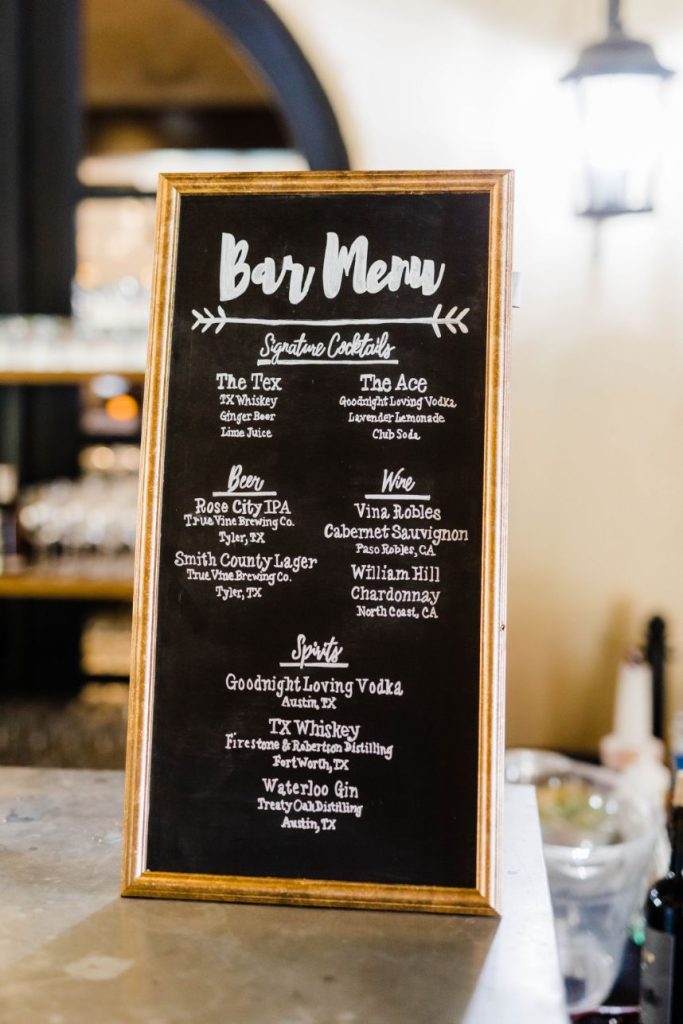 Bar Menu
Signature Cocktails
The Tex
TX Whiskey
Ginger Beer
Lime Juice
The Ace
Goodnight Loving Vodka
Lavender Lemonade
Club Soda
Beer
Rose City IPA
True Vine Brewing Co.
Tyler, TX
Smith County Lager
True Vine Brewing Co.
Tyler, TX
Wine
Vina Robles
Cabernet Sauvignon
Paso Robles, CA
William Hill
Chardonnay
North Coast, CA
Spirits
Goodnight Loving Vodka
Austin, TX
TX Whiskey
Firestone & Robertson Distilling
Fort Worth, TX
Waterloo Gin
Treaty Oak Distilling
Austin, TX